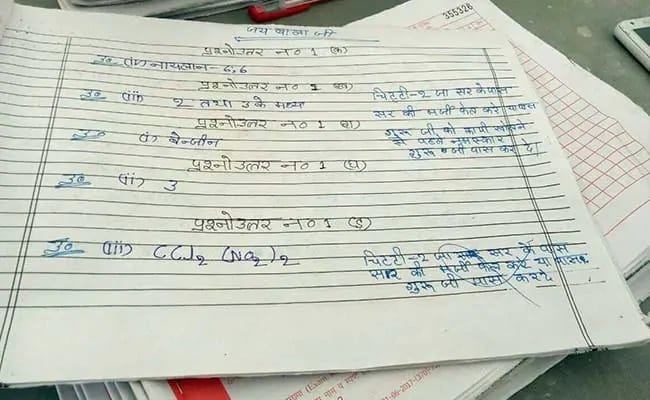 355326
जय बाबा जी
प्रश्नोत्तर न० 1 (क)
उ० (iv) नायलान - 6,6
प्रश्नोत्तर न० 1 (ख)
उ० (iii) 2 तथा 3 के मध्य
प्रश्नोत्तर न० 1 (ग)
उ० (i) बेन्जीन
प्रश्नोत्तर न० 1 (घ)
उ० (ii) 3
प्रश्नोत्तर न० 1 (ड)
उ० (iii) CCl2 (NO2)2
चिटटी-2 जा सर के पास
सर की मर्जी फेल करे या पास
गुरू जी को कापी खोलने
से पहले नमस्कार
गुरू जी पास कर दें।
चिटटी-2 जा सर के पास
सर की मर्जी फेल करे या पास
गुरू जी पास करदे